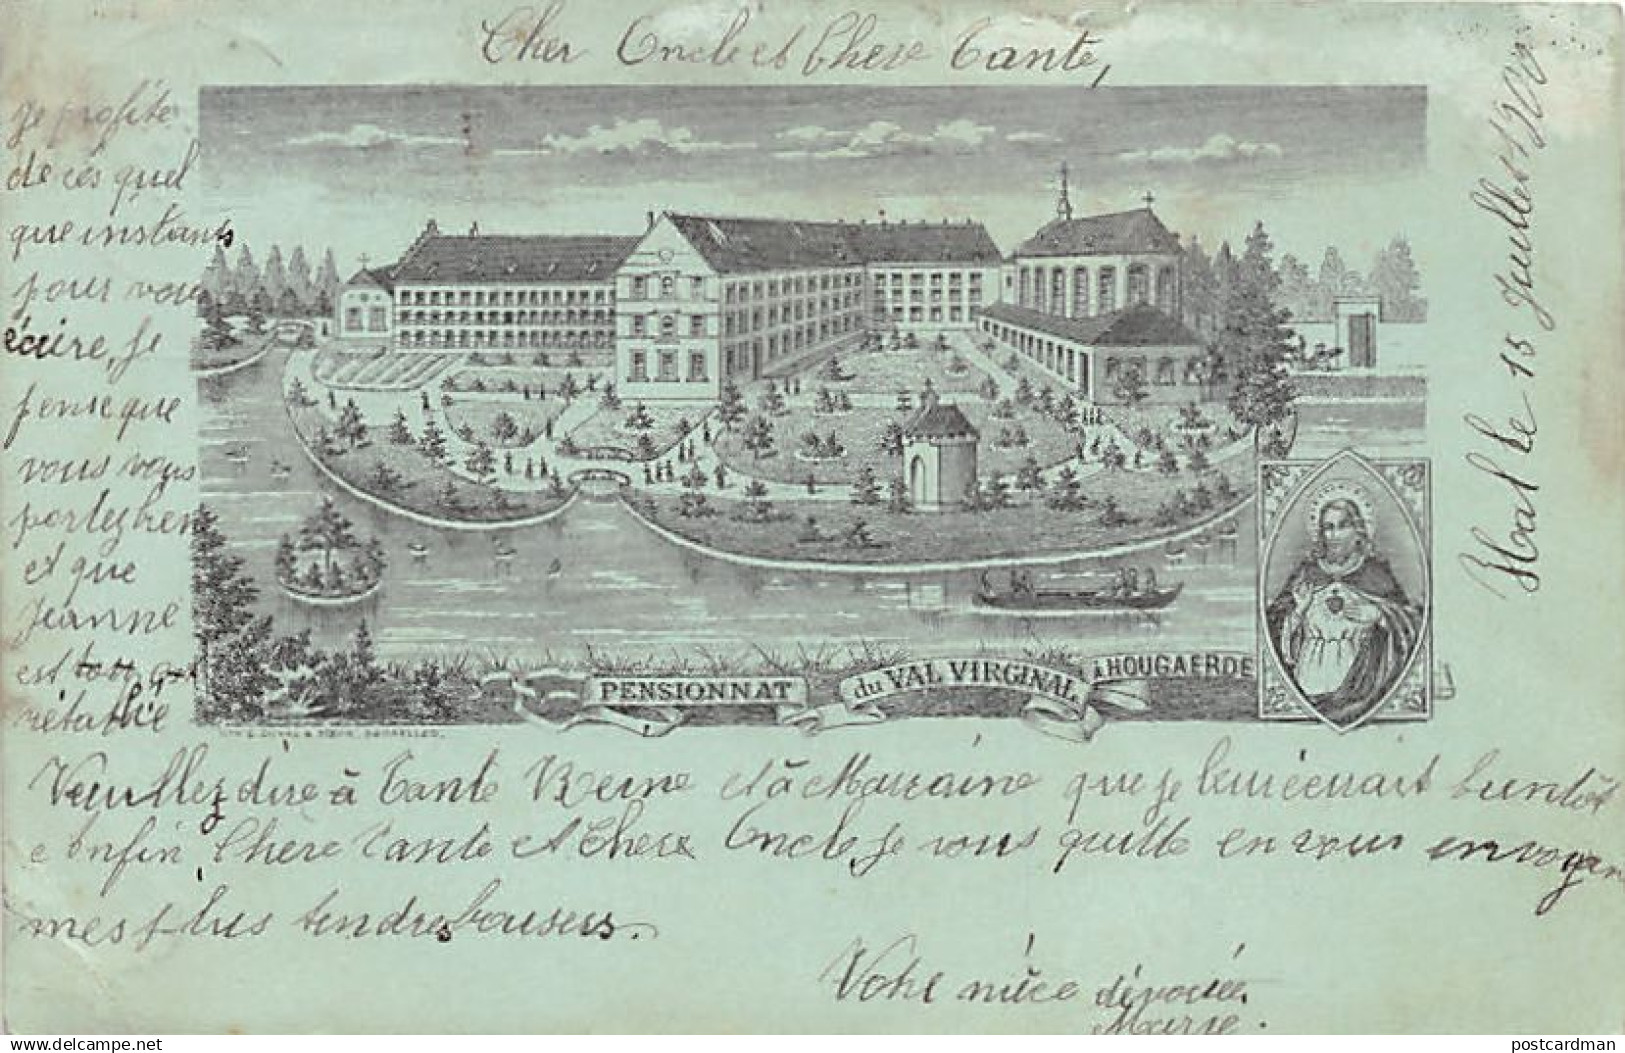 Cher Oncle et Chere Tante,
Hal le 15 Juillet 1900
je profite
de ces quel
que instants
pour vous
écrire, Je
pense que
vous vous
portez bien
et que
Jeanne
est tout
rétablie
PENSIONNAT du VAL VIRGINAL à HOUGAERDE
Veuillez dire à Tante Reine et à Marraine que je leur écrirait bientôt
Enfin, Chère Tante et Chere Oncle, je vous quitte en vous envoyan
mes plus tendres baisers.
Votre nièce dévouée.
Marie.
delcampe.net
postcardman